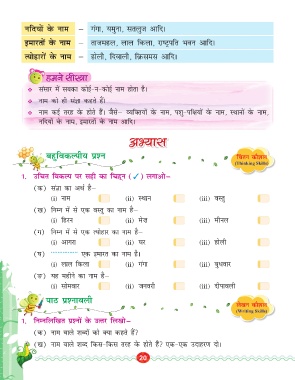 नदियों के नाम – गंगा, यमुना, सतलुज आदि।
इमारतों के नाम – ताजमहल, लाल किला, राष्ट्रपति भवन आदि।
त्योहारों के नाम – होली, दिवाली, क्रिसमस आदि।
हमने सीखा
❖ संसार में सबका कोई-न-कोई नाम होता है।
❖ नाम को ही संज्ञा कहते हैं।
❖ नाम कई तरह के होते हैं। जैसे– व्यक्तियों के नाम, पशु-पक्षियों के नाम, स्थानों के नाम,
नदियों के नाम, इमारतों के नाम आदि।
अभ्यास
बहुविकल्पीय प्रश्न
चिंतन कौशल
(Thinking Skills)
1. उचित विकल्प पर सही का चिह्न (✓) लगाओ–
(क) संज्ञा का अर्थ है–
(i) नाम (ii) स्थान (iii) वस्तु
(ख) निम्न में से एक वस्तु का नाम है–
(i) हिरन (ii) मेज़ (iii) मीनल
(ग) निम्न में से एक त्योहार का नाम है–
(i) आगरा (ii) घर (iii) होली
(घ) ............ एक इमारत का नाम है।
(i) लाल किला (ii) गंगा (iii) बुधवार
(ङ) यह महीने का नाम है–
(i) सोमवार (ii) जनवरी (iii) दीपावली
पाठ प्रश्नावली
लेखन कौशल
(Writing Skills)
1. निम्नलिखित प्रश्नों के उत्तर लिखो–
(क) नाम वाले शब्दों को क्या कहते हैं?
(ख) नाम वाले शब्द किस-किस तरह के होते हैं? एक-एक उदाहरण दो।
20